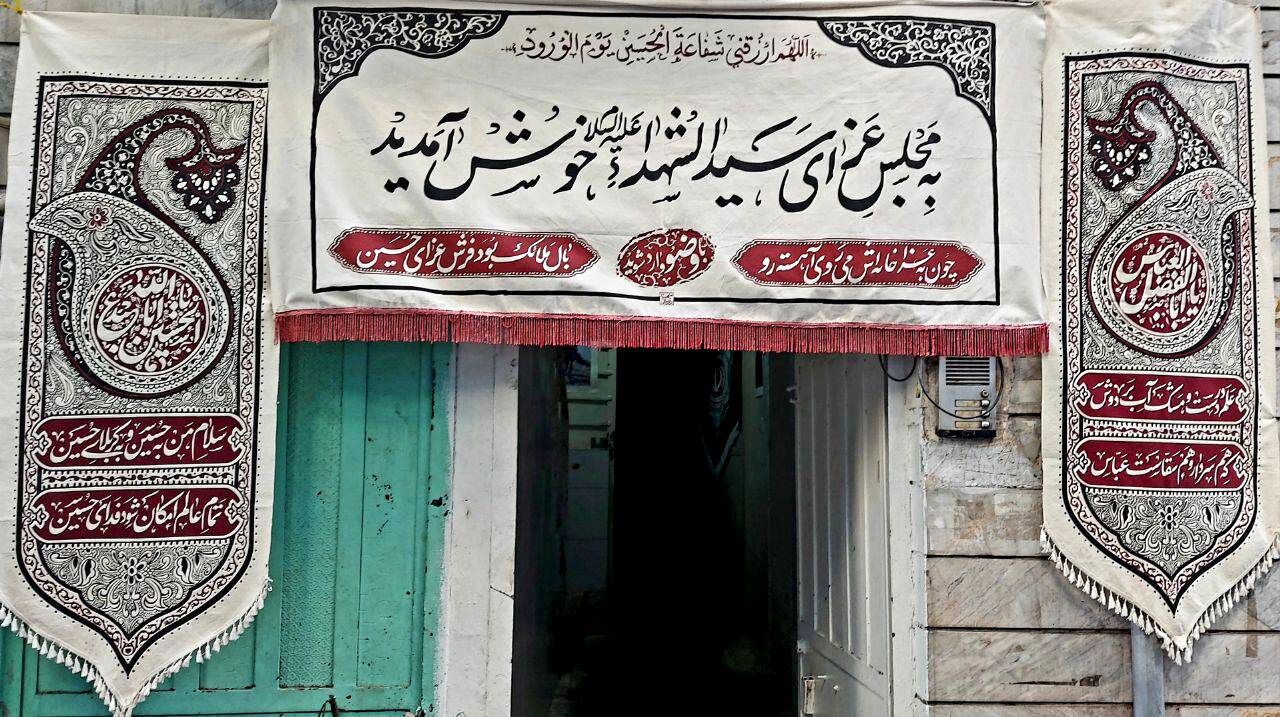 اللهم ارزقني شفاعة الحسين يوم الورود
به مجلس عزای سیدالشهداء علیه السلام خوش آمدید
چون به عزاخانه‌اش می‌روی آهسته رو
با وضو وارد شوید
بال ملائک بود فرش عزای حسین
یا اباالفضل العباس
علم به دست و مشک آب به دوش
هم سردار و هم سقاست عباس
یا اباعبدالله الحسین
سلام من به حسین و به کربلای حسین
تمام عالم امکان شود فدای حسین